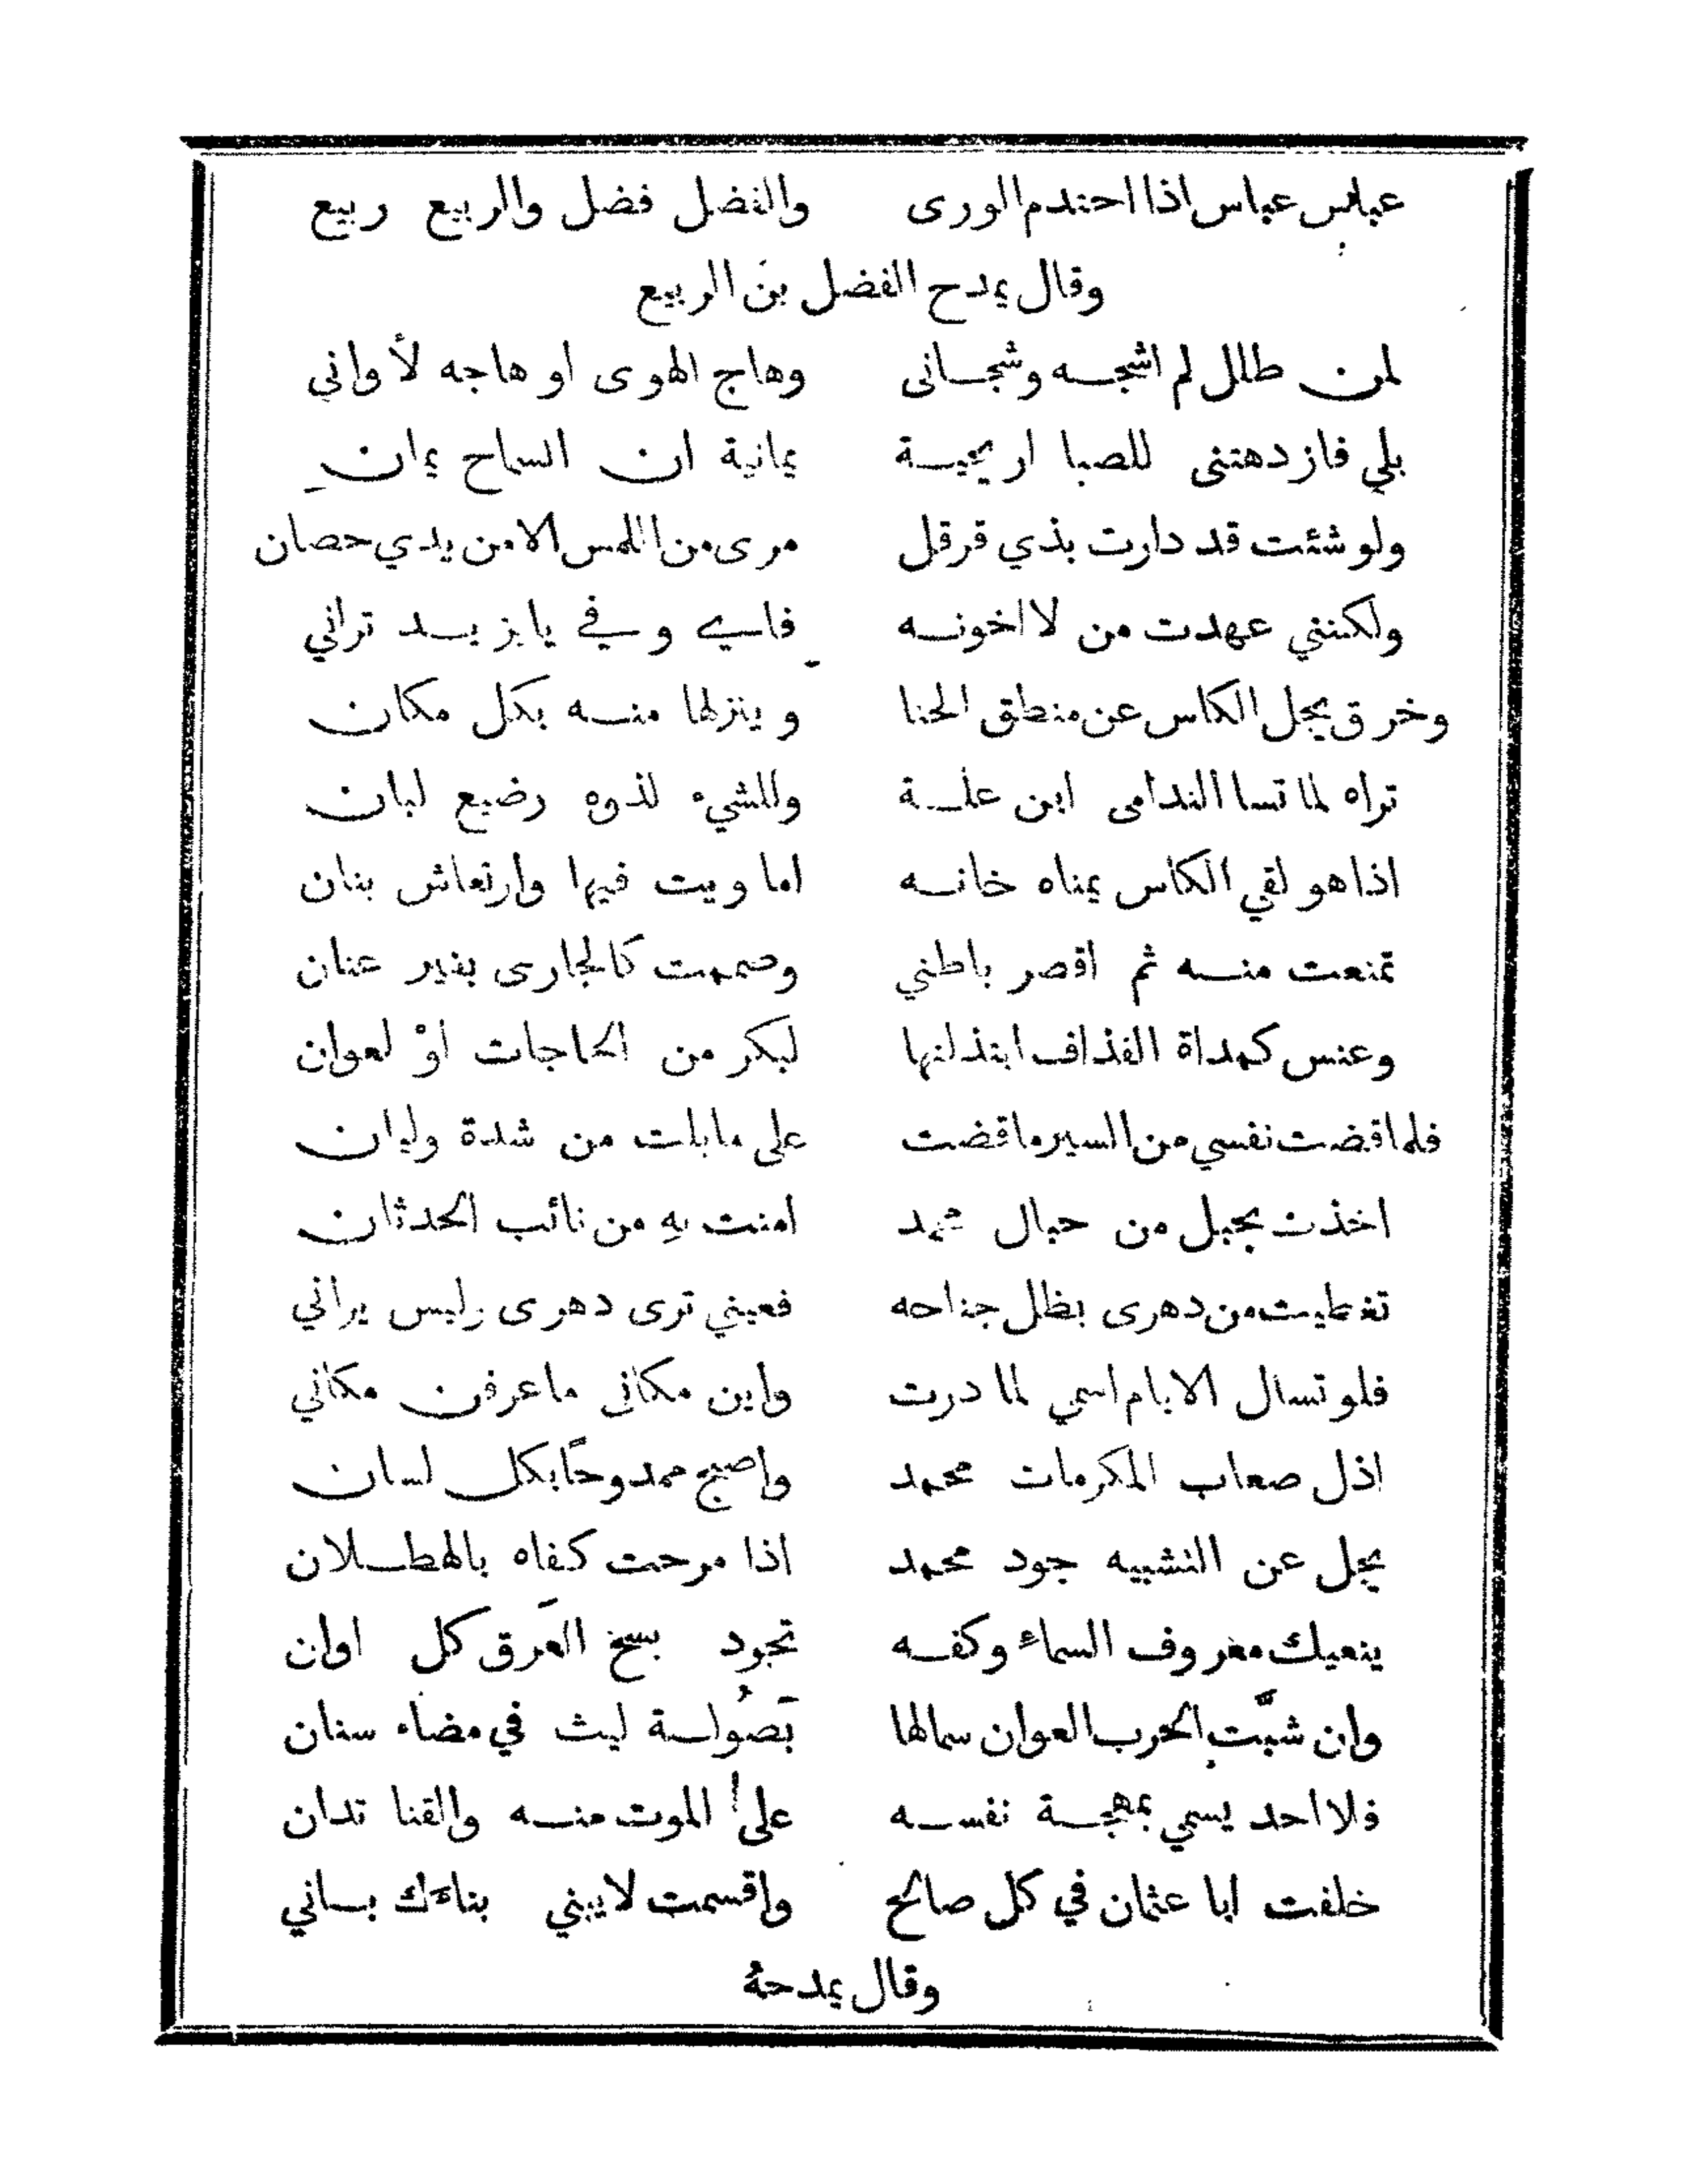 عباس عباس اذا احتدم الورى والفضل فضل والربيع ربيع
وقال يمدح الفضل بن الربيع
لمن طلل لم اشجه وشجانى وهاج الهوى او هاجه لأواني
بلي فازدهتنى للصبا اريحية يمانية ان السماح يمان
ولو شئت قد دارت بذي قرقل مرى من اللمس الامن يدي حصان
ولكنني عهدت من لا اخونه فاي وفي يا يزيد تراني
وخرق يجل الكاس عن منطق الحنا وينزلها منه بكل مكان
تراه لما تسا الندامى ابن علة وللشيء لذوه رضيع لبان
اذا هو لقي الكأس يمناه خانه اما ويت فيها وارتعاش بنان
تمنعت منه ثم اقصر باطني وصممت كالجارى بغير عنان
وعنس كمداة القذاف ابتذلنها لبكر من الحاجات اوْ لعوان
فلما قضت نفسي من السير ماقضت على مابلت من شدة وليان
اخذت بحبل من حبال محمد امنت بهِ من نائب الحدثان
تغطيت من دهرى بظل جناحه فعيني ترى دهرى وليس يراني
فلو تسال الايام اسمي لما درت واين مكانى ماعرفن مكاني
اذل صعاب المكرمات محمد واصبح ممدوحًا بكل لسان
يجل عن التشبيه جود محمد اذا مرحت كفاه بالهطلان
ينعيك معروف السماء وكفه تجود بسح العَرق كل اوان
وان شبَّت الحرب العوان سمالها بَصُولة ليث في مضاء سنان
فلا احد يسمي بمهجة نفسه على الموت منه والقنا تدان
خلفت ابا عثمان في كل صالح واقسمت لايبني بناءَك بانى
وقال يمدحهُ